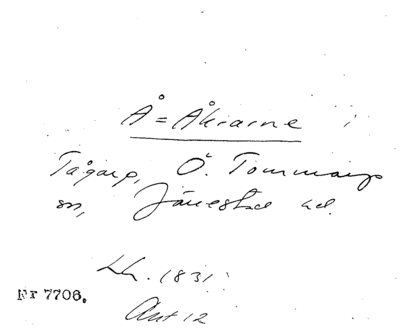 Å = Åkrarne i
Tågarp, Ö. Tommarps
sn, Järrestad hd.
Lh. 1831:
Nr 7706.
Akt 12